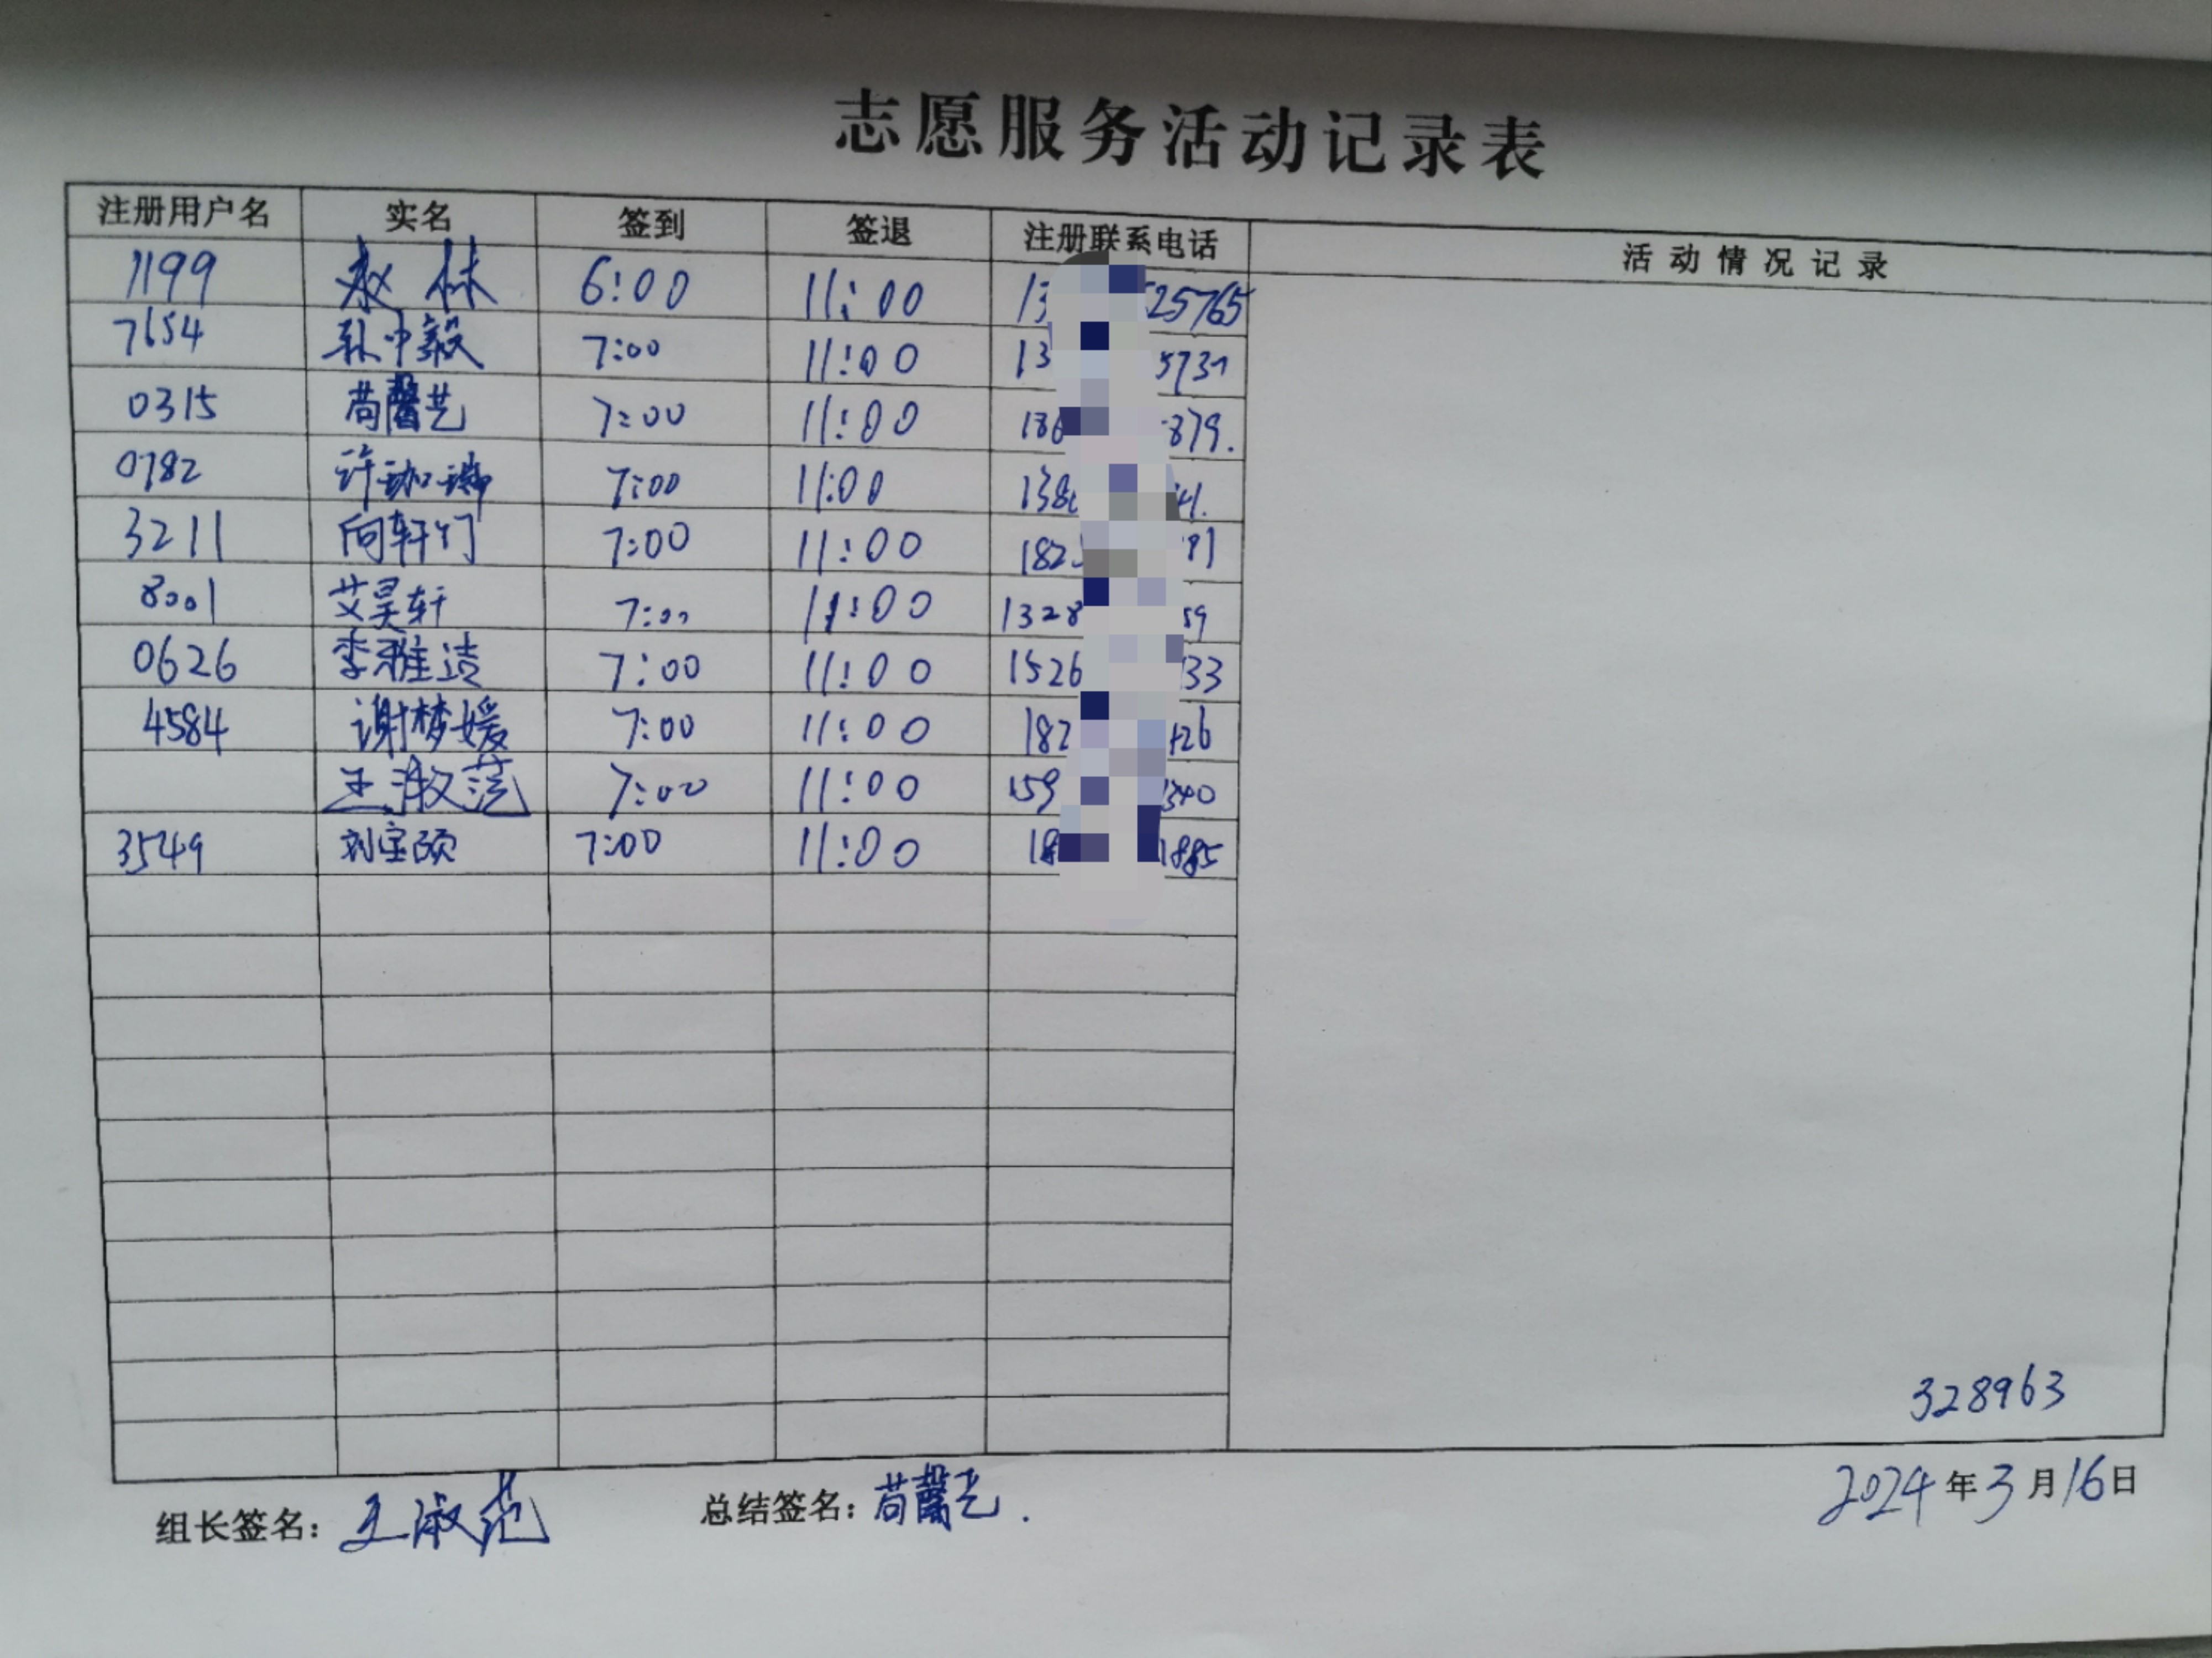 志愿服务活动记录表
注册用户名 实名 签到 签退 注册联系电话 活动情况记录
1199 林 6:00 11:00 13 25765
7654 孙中毅 7:00 11:00 13 5731
0315 苟馨艺 7:00 11:00 186 879.
0782 许珈瑞 7:00 11:00 138 41.
3211 向轩灯 7:00 11:00 182 81
8001 艾昊轩 7:00 11:00 1328 59
0626 李雅洁 7:00 11:00 1526 33
4584 谢梦媛 7:00 11:00 182 426
王淑范 7:00 11:00 159 340
3549 刘宝颐 7:00 11:00 18 1885
328963
组长签名：王淑范 总结签名：苟馨艺. 2024年3月16日